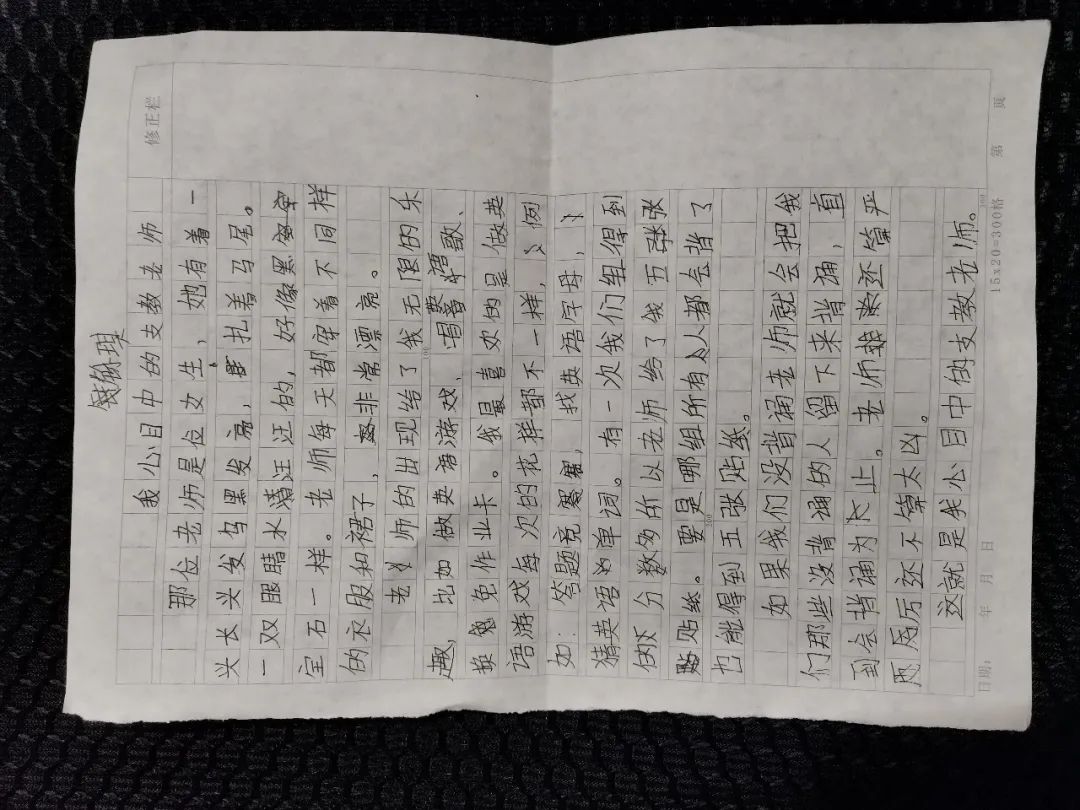 钱毓琪
我心目中的支教老师
那位老师是位女生、她有着一
头长头发乌黑发亮,扎着马尾。
一双眼睛水清汪汪的,好像黑宝
宝石一样。老师每天都穿着不同样
的衣服和裙子,非常漂亮。
老师的出现给了我无限的乐
趣,比如做英语游戏、唱英语歌、
换免作业卡。我最喜欢的是做英
语游戏每次的花样都不一样,例
如:答题竞赛,找英语字母,
猜英语单词。有一次我们组得到
的分数多所以老师给了我五张
贴纸。要是哪组所有人都会背了
也能得到五张贴纸。
如果我们没背诵老师就会把我
们那些没背诵的人留下来背诵,直
到会背诵为止。老师还算严
厉还不算太凶。
这就是我心目中的支教老师。
修正栏
日期: 年 月 日
15x20=300格
第 页
100
200
300